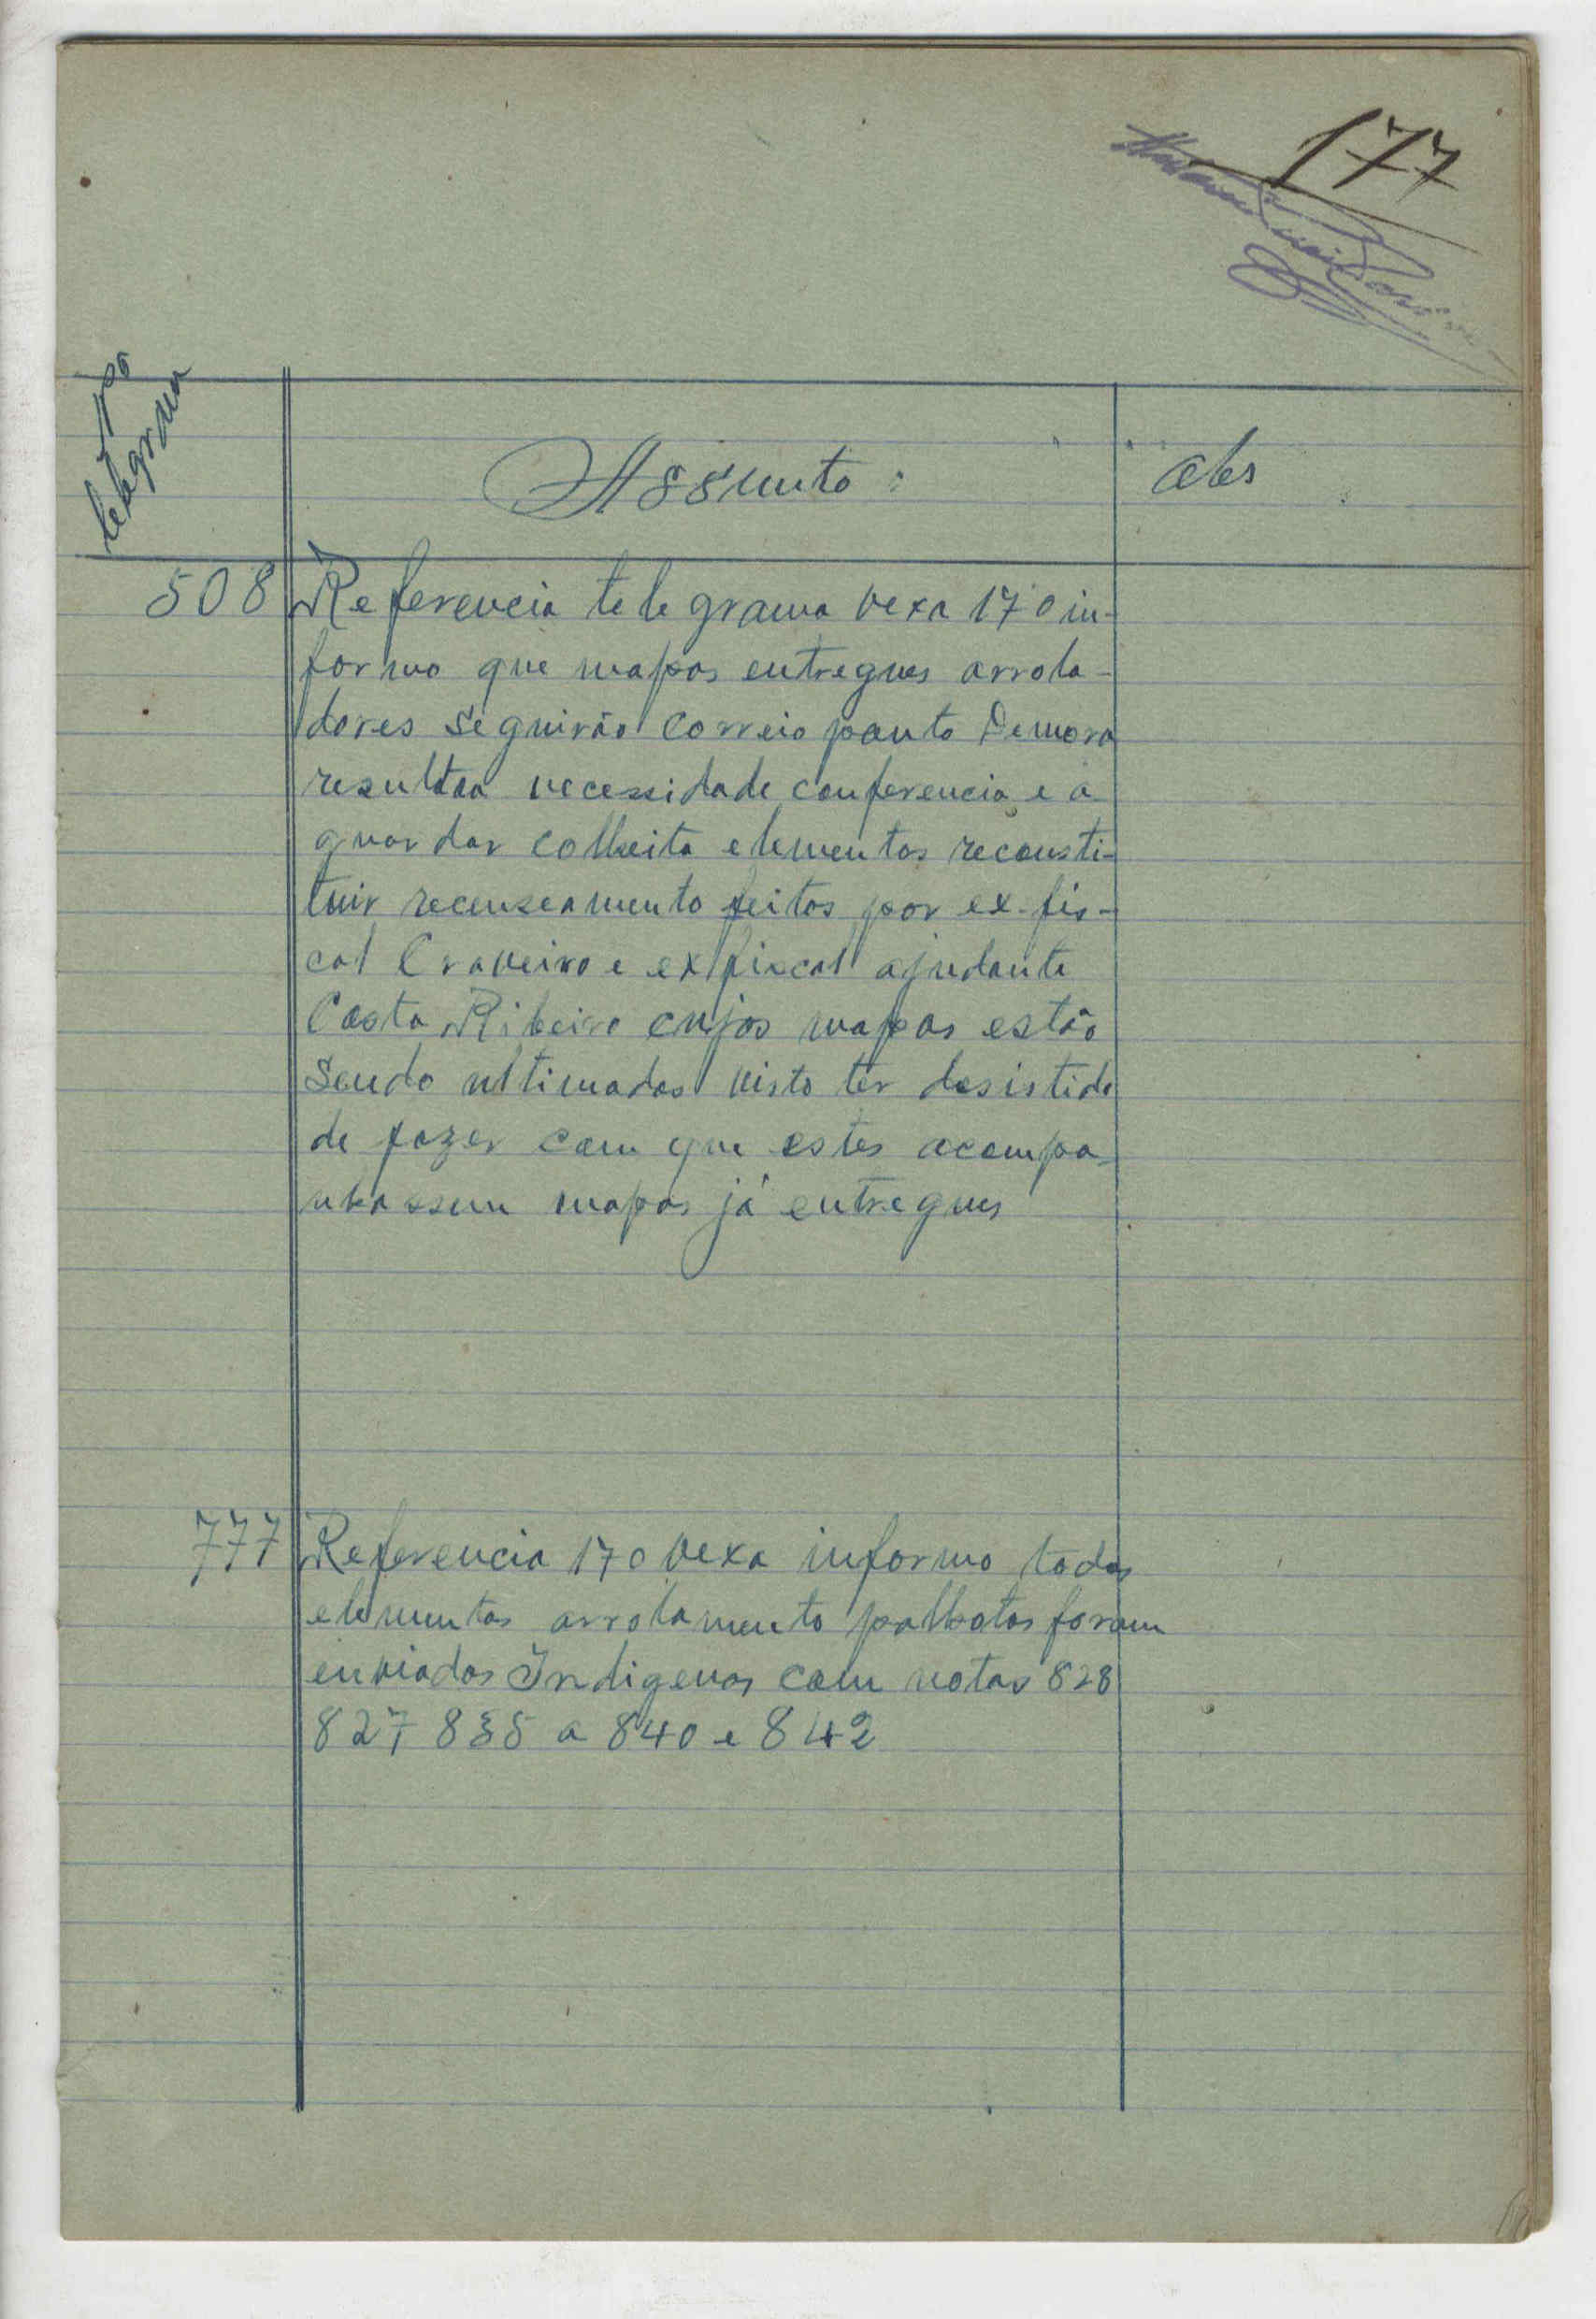 177
Nº telegrama
Assunto:
Obs
508
Referencia telegrama vexa 170 in-
formo que mapas entregues arrola-
dores seguirão correio ponto Demora
resultou necessidade conferencia e a
guardar colheita elementos reconsti-
tuir recenseamento feitos por ex-fis-
cal Craveiro e ex fiscal ajudante
Costa Ribeiro cujos mapas estão
sendo ultimados visto ter desistido
de fazer com que estes acompa-
nhassem mapas já entregues
777
Referencia 170 vexa informo todos
elementos arrolamento palhotas foram
enviados Indigenas com notas 828
827 835 a 840 e 842